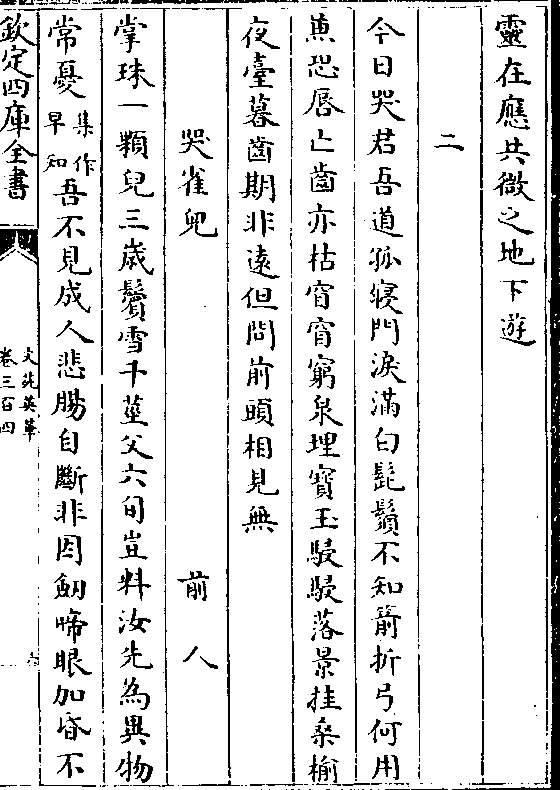 靈在應共微之地下遊
二
今日哭君吾道孤寢門淚滿白髭鬚不知箭折弓何用
兼恐唇亡齒亦枯窅窅窮泉埋寶玉駸駸落景挂桑榆
夜臺暮齒期非遠但問前頭相見無
哭雀兒 前人
掌珠一顆兒三歲鬢雪千莖父六旬豈料汝先為異物
常憂集作早知吾不見成人悲腸自斷非因劒啼眼加昏不
欽定四庫全書
文苑英華
卷三百四
六